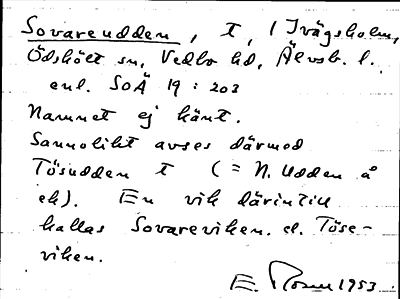 Sovareudden, t, / Ivägsholm,
Ödskölt sn, Vedbo hd, Älvsb. l.
enl. SOÄ 19 : 203
Namnet ej känt.
Sannolikt avses därmed
Tösudden t (= N. Udden å
ek). En vik därintill
kallas Sovareviken. el. Töse-
viken.
E. Rosen 1953